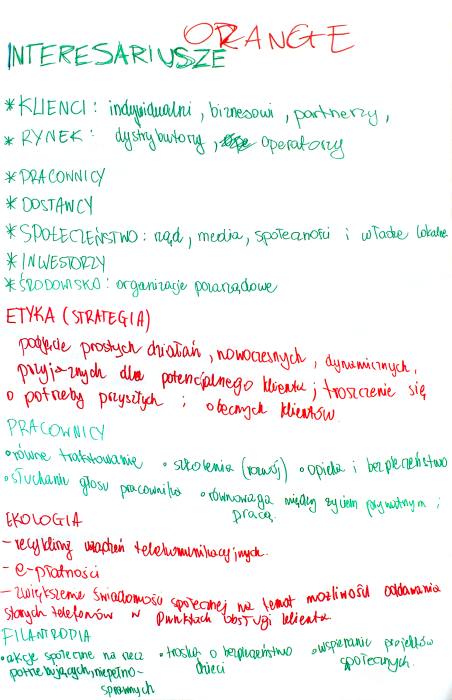 ORANGE
INTERESARIUSZE
* KLIENCI: indywidualni, biznesowi, partnerzy,
* RYNEK: dystrybutorzy, operatorzy
* PRACOWNICY
* DOSTAWCY
* SPOŁECZEŃSTWO: rząd, media, społeczności i władze lokalne
* INWESTORZY
* ŚRODOWISKO: organizacje pozarządowe
ETYKA (STRATEGIA)
podjęcie prostych działań, nowoczesnych, dynamicznych,
przyjaznych dla potencjalnego klienta; troszczenie się
o potrzeby przyszłych i obecnych klientów
PRACOWNICY
• równe traktowanie • szkolenia (rozwój) • opieka i bezpieczeństwo
• słuchanie głosu pracownika • równowaga między życiem prywatnym i
pracą.
EKOLOGIA
- recykling urządzeń telekomunikacyjnych.
- e-płatności
- zwiększenie świadomości społecznej na temat możliwości oddawania
starych telefonów w punktach obsługi klienta.
FILANTROPIA
• akcje społeczne na rzecz • troska o bezpieczeństwo • wspieranie projektów
potrzebujących, niepełno- dzieci społecznych.
sprawnych